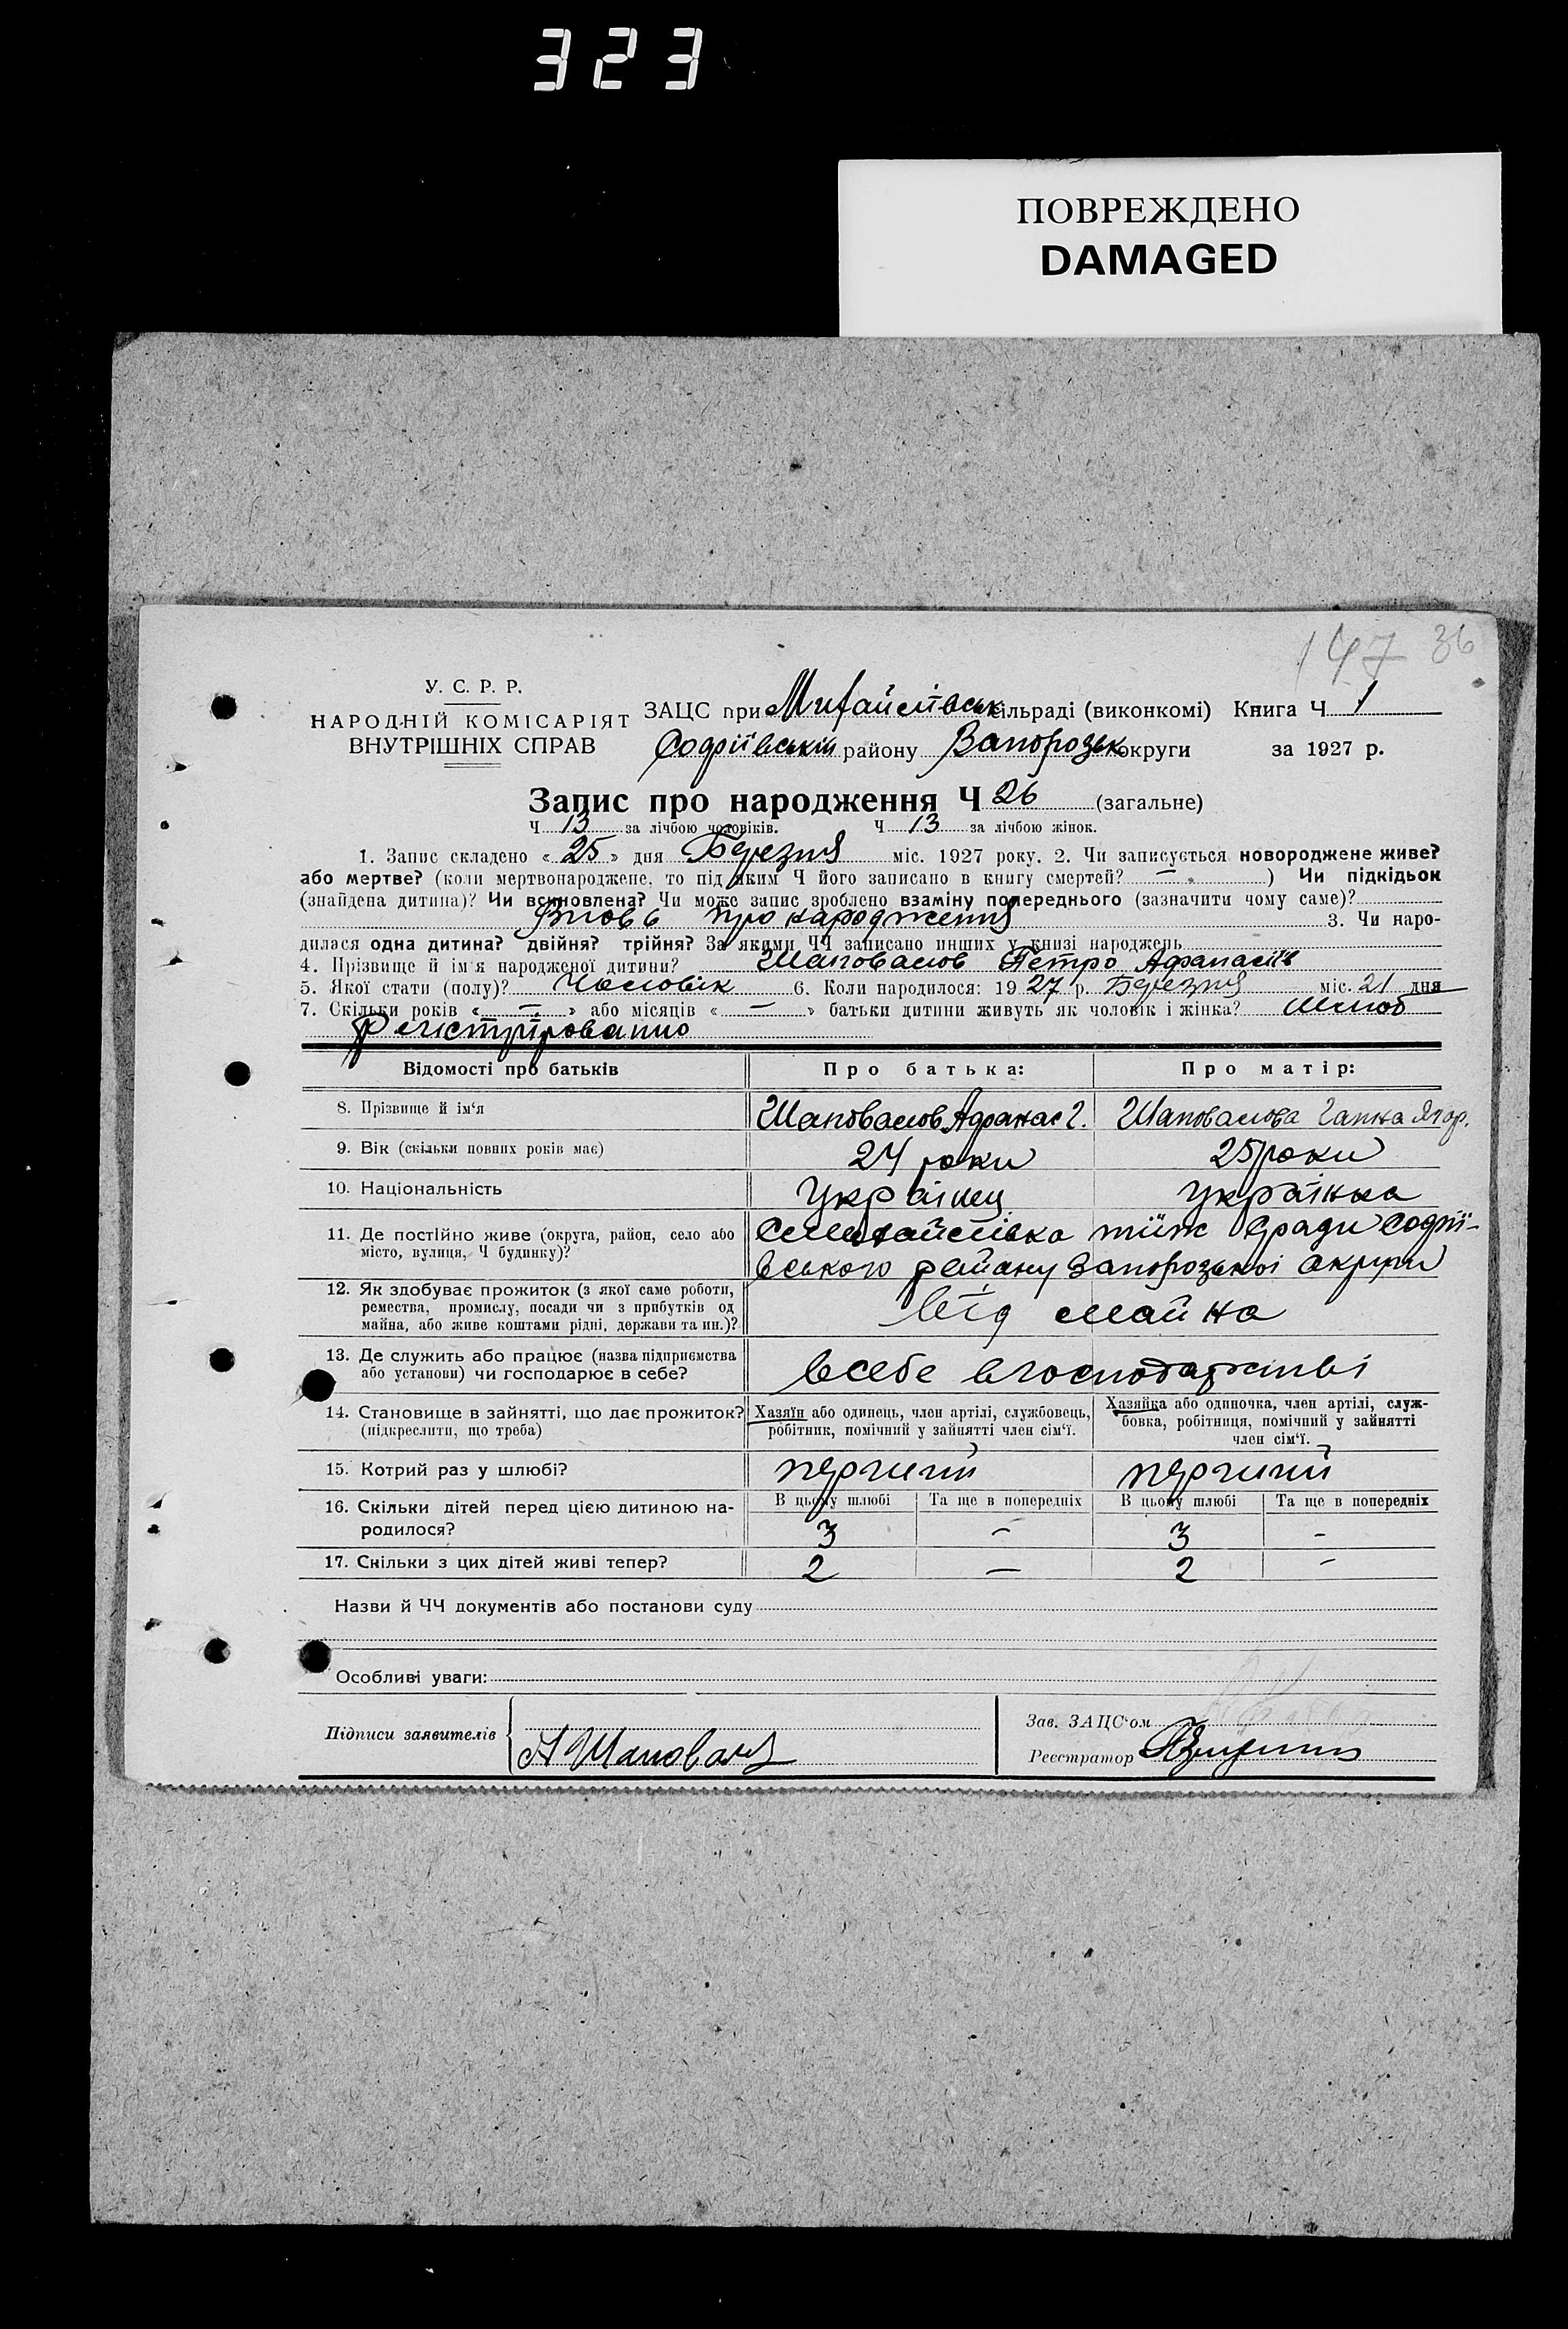 323
ПОВРЕЖДЕНО
DAMAGED
147 36
У. С. Р. Р.
НАРОДНІЙ КОМІСАРІЯТ
ВНУТРІШНІХ СПРАВ
ЗАЦС при Михайлівськ сільраді (виконкомі) Книга Ч 1
Софіївськім району Запорозьк округи за 1927 р.
Запис про народження Ч 26 (загальне)
Ч 13 за лічбою чоловіків. Ч 13 за лічбою жінок.
1. Запис складено « 25 » дня Березня міс. 1927 року. 2. Чи записується новороджене живе?
або мертве? (коли мертвонароджене, то під яким Ч його записано в книгу смертей? — ) Чи підкідьок
(знайдена дитина)? Чи всиновлена? Чи може запис зроблено взаміну попереднього (зазначити чому саме)?
Вновь про народження 3. Чи наро-
дилася одна дитина? двійня? трійня? За якими ЧЧ записано инших у книзі народжень
4. Прізвище й ім'я народженої дитини? Шаповалов Петро Афанасів
5. Якої стати (полу)? Чоловік 6. Коли народилося: 19 27 р. Березня міс. 21 дня
7. Скільки років « — » або місяців « — » батьки дитини живуть як чоловік і жінка? Шлюб
регистріровано
Відомості про батьків Про батька: Про матір:
8. Прізвище й ім'я Шаповалов Афанас Г. Шаповалова Гапка
9. Вік (скільки повних років має) 24 роки 25 роки
10. Національність Українец Українка
11. Де постійно живе (округа, район, село або
місто, вулиця, Ч будинку)?
С Михайлівка тіїж с ради Софії-
вського району Запорозькоі округи
12. Як здобуває прожиток (з якої саме роботи,
ремества, промислу, посади чи з прибутків од
майна, або живе коштами рідні, держави та ин.)?
від майна
13. Де служить або працює (назва підприємства
або установи) чи господарює в себе?
всебе вгосподарстві
14. Становище в зайнятті, що дає прожиток?
(підкреслити, що треба)
Хазяїн або одинець, член артілі, службовець,
робітник, помічний у зайнятті член сім'ї.
Хазяйка або одиночка, член артілі, служ-
бовка, робітниця, помічний у зайнятті
член сім'ї.
15. Котрий раз у шлюбі? перчий перчий
16. Скільки дітей перед цією дитиною на-
родилося?
В цьому шлюбі Та ще в попередніх В цьому шлюбі Та ще в попередніх
3 — 3 -
17. Скільки з цих дітей живі тепер? 2 — 2 -
Назви й ЧЧ документів або постанови суду
Особливі уваги:
Підписи заявителів
А Шаповал
Зав. ЗАЦС'ом
Реєстратор